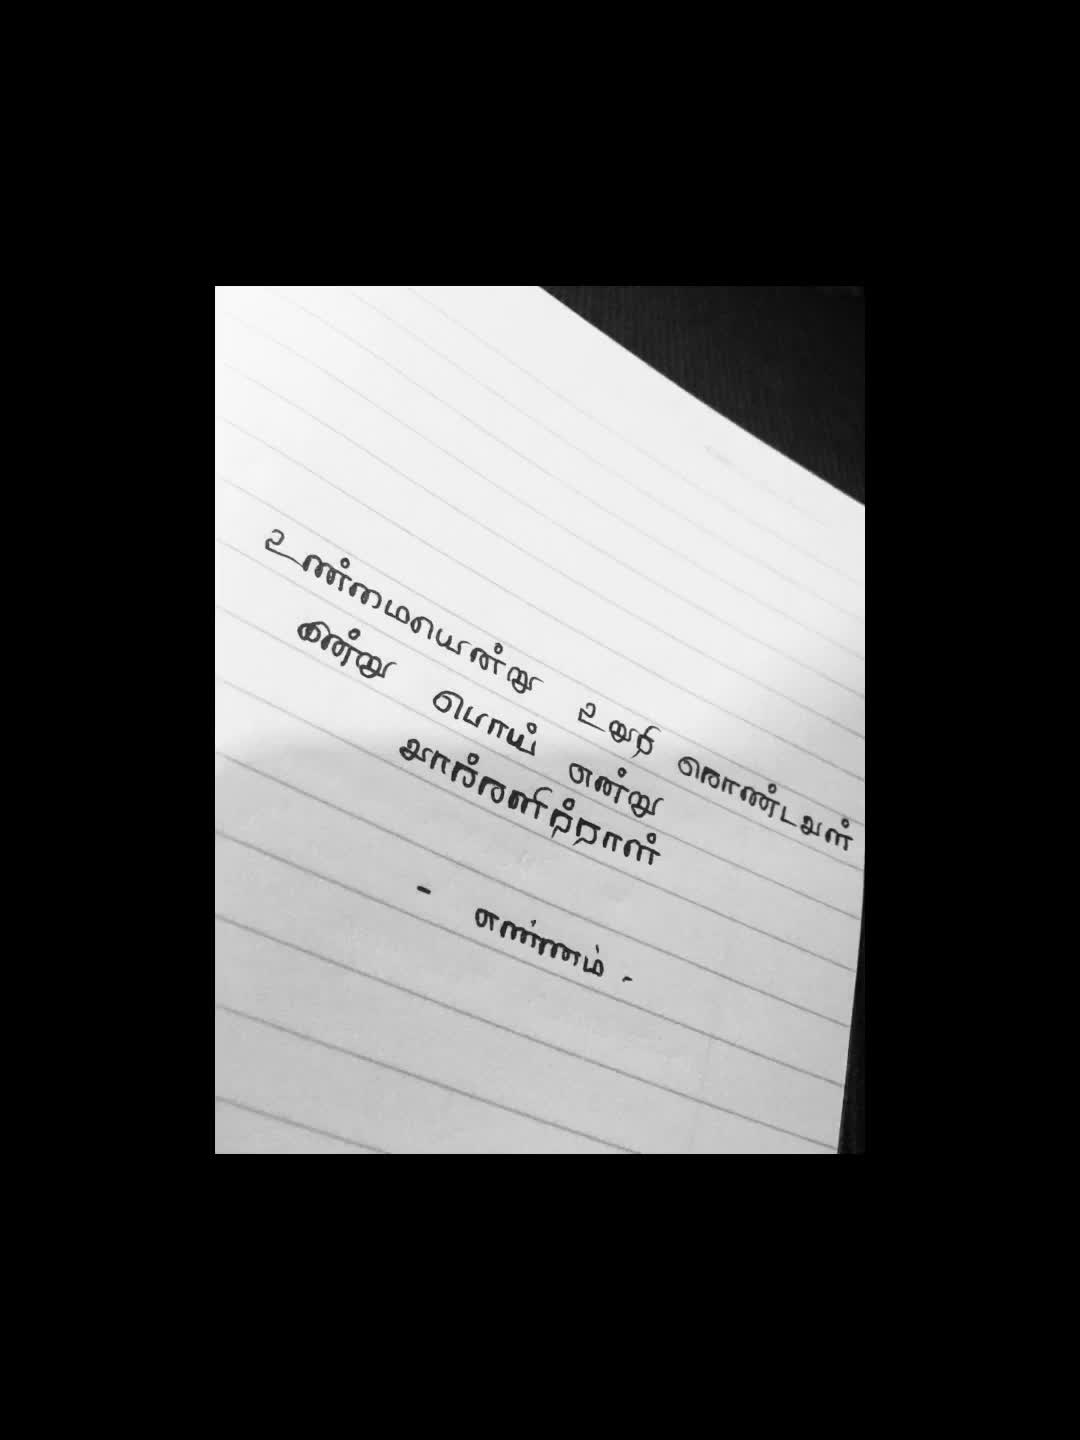 உண்மையென்று உறுதி கொண்டவள்
இன்று பொய் என்று
வாக்களிற்றாள்
- எண்ணம் -